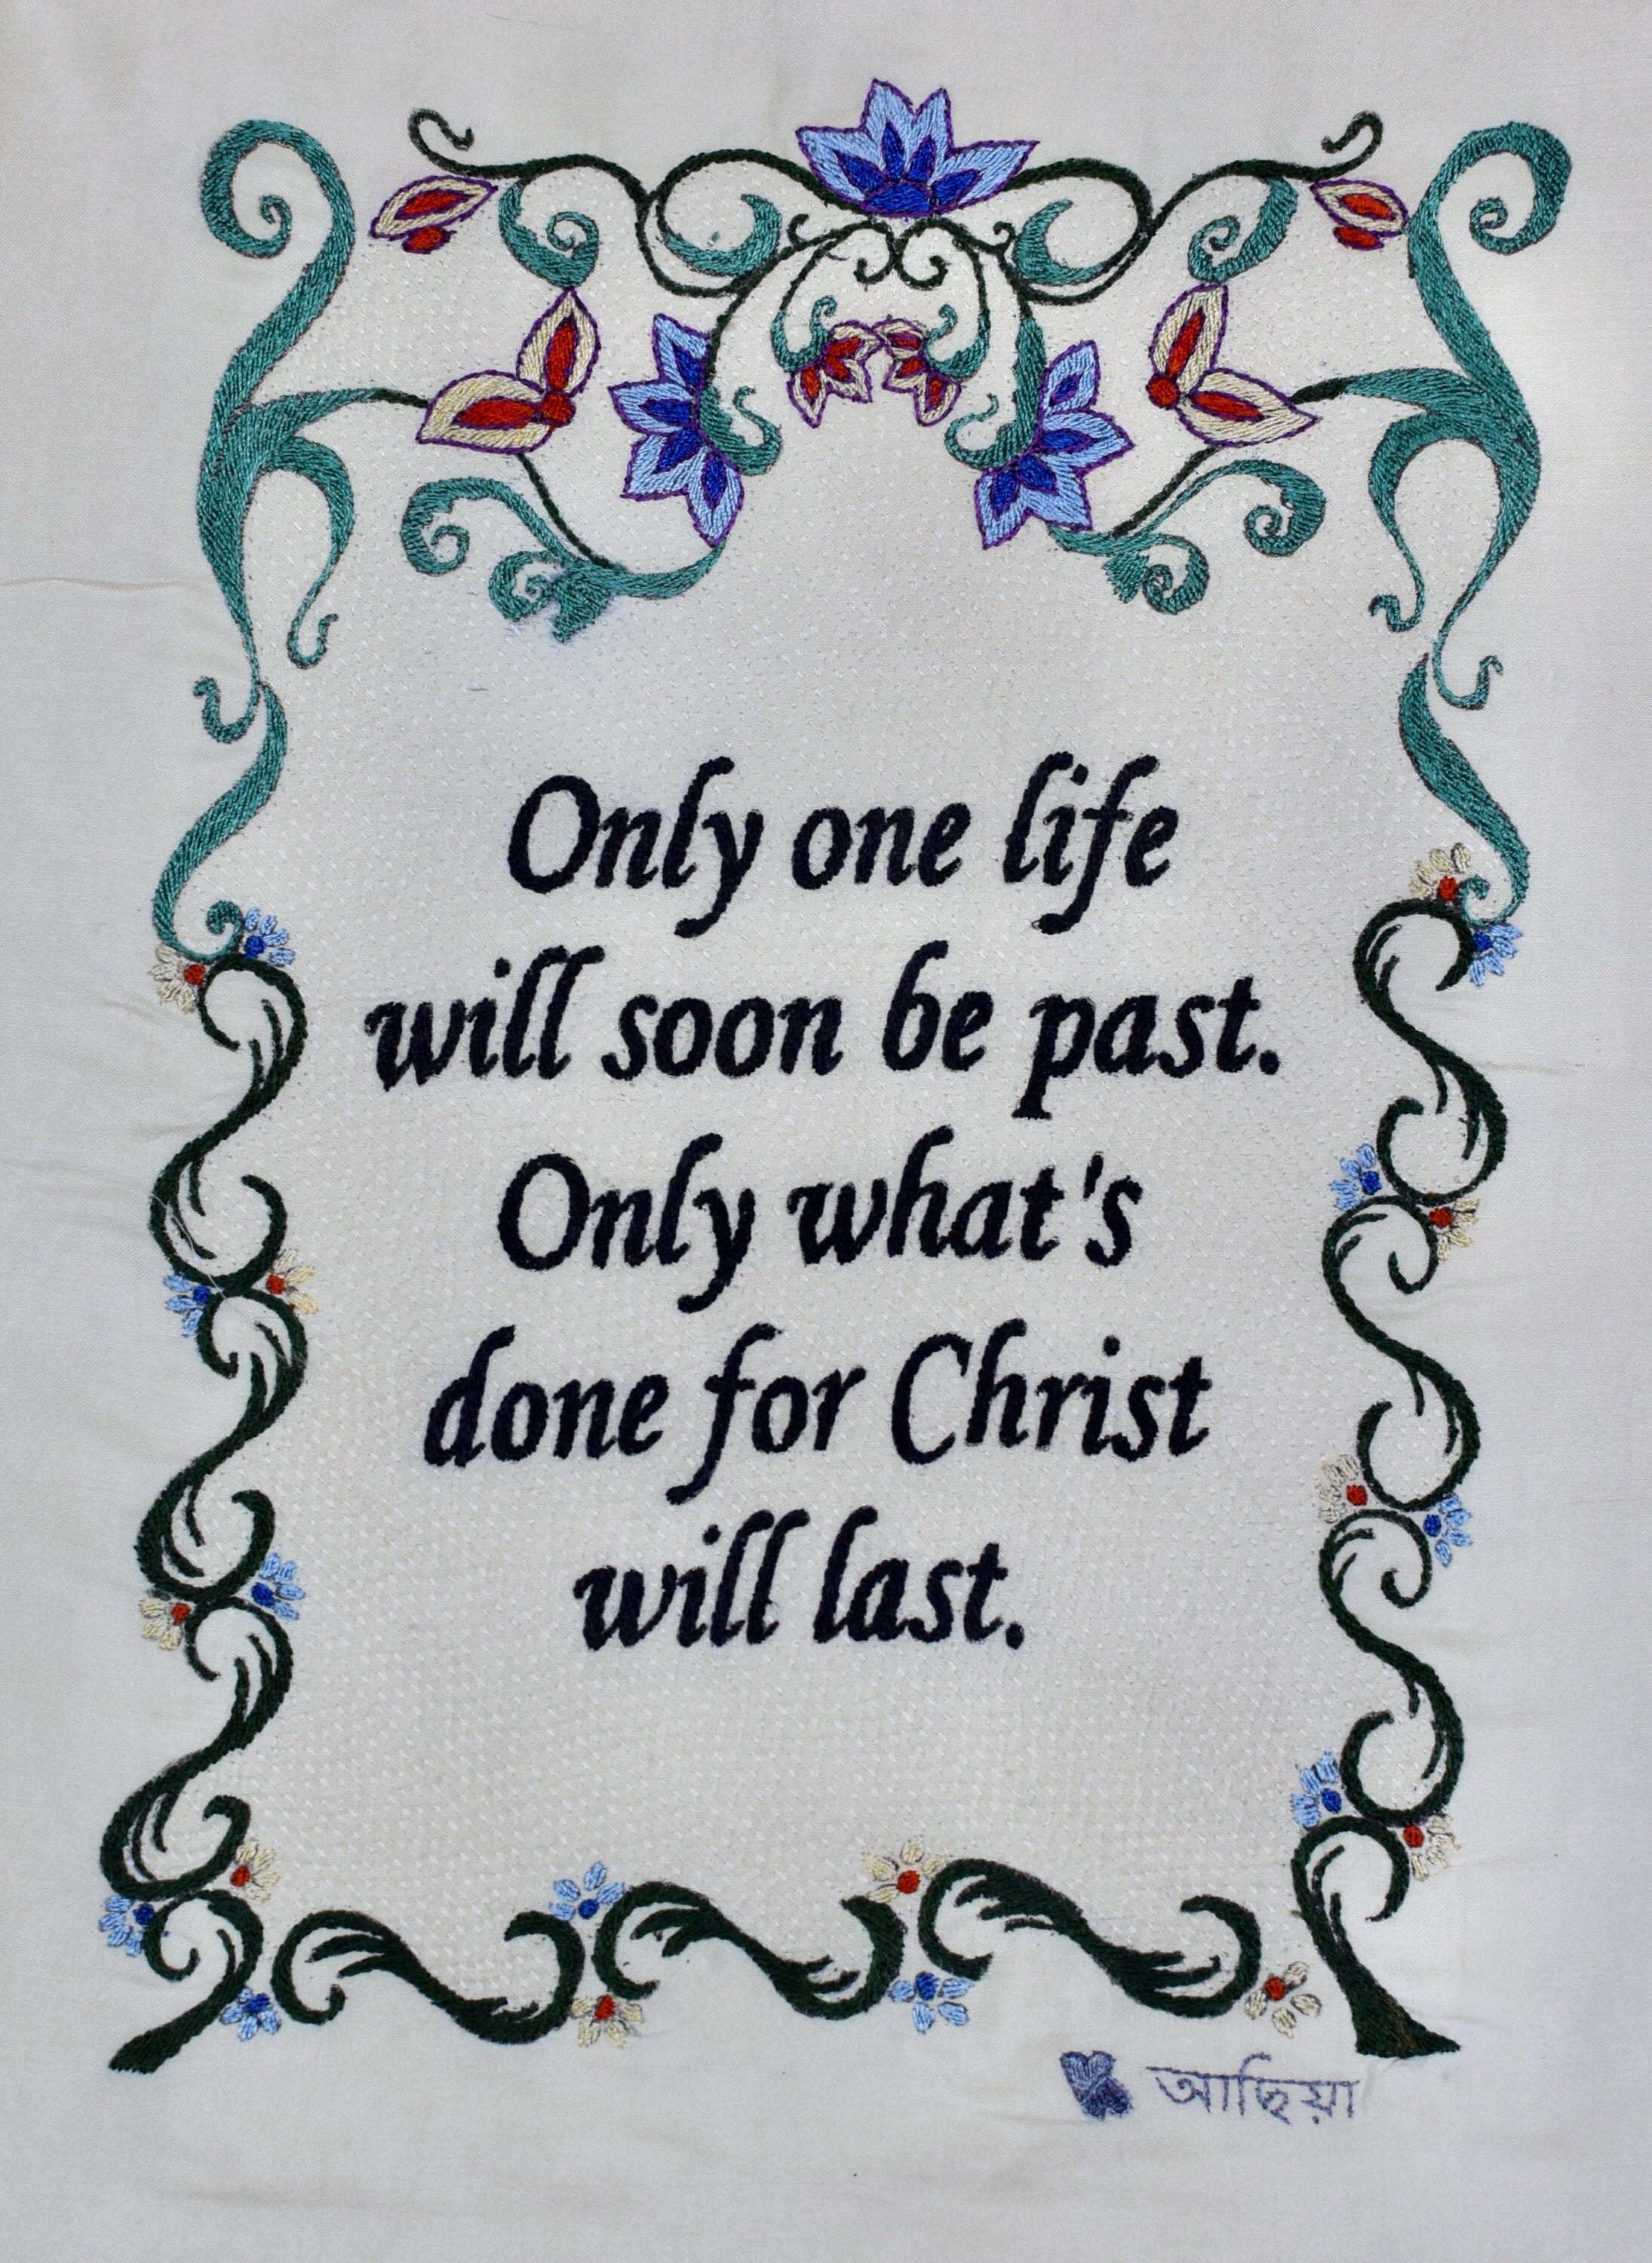 Only one life
will soon be past.
Only what's
done for Christ
will last.
আছিয়া